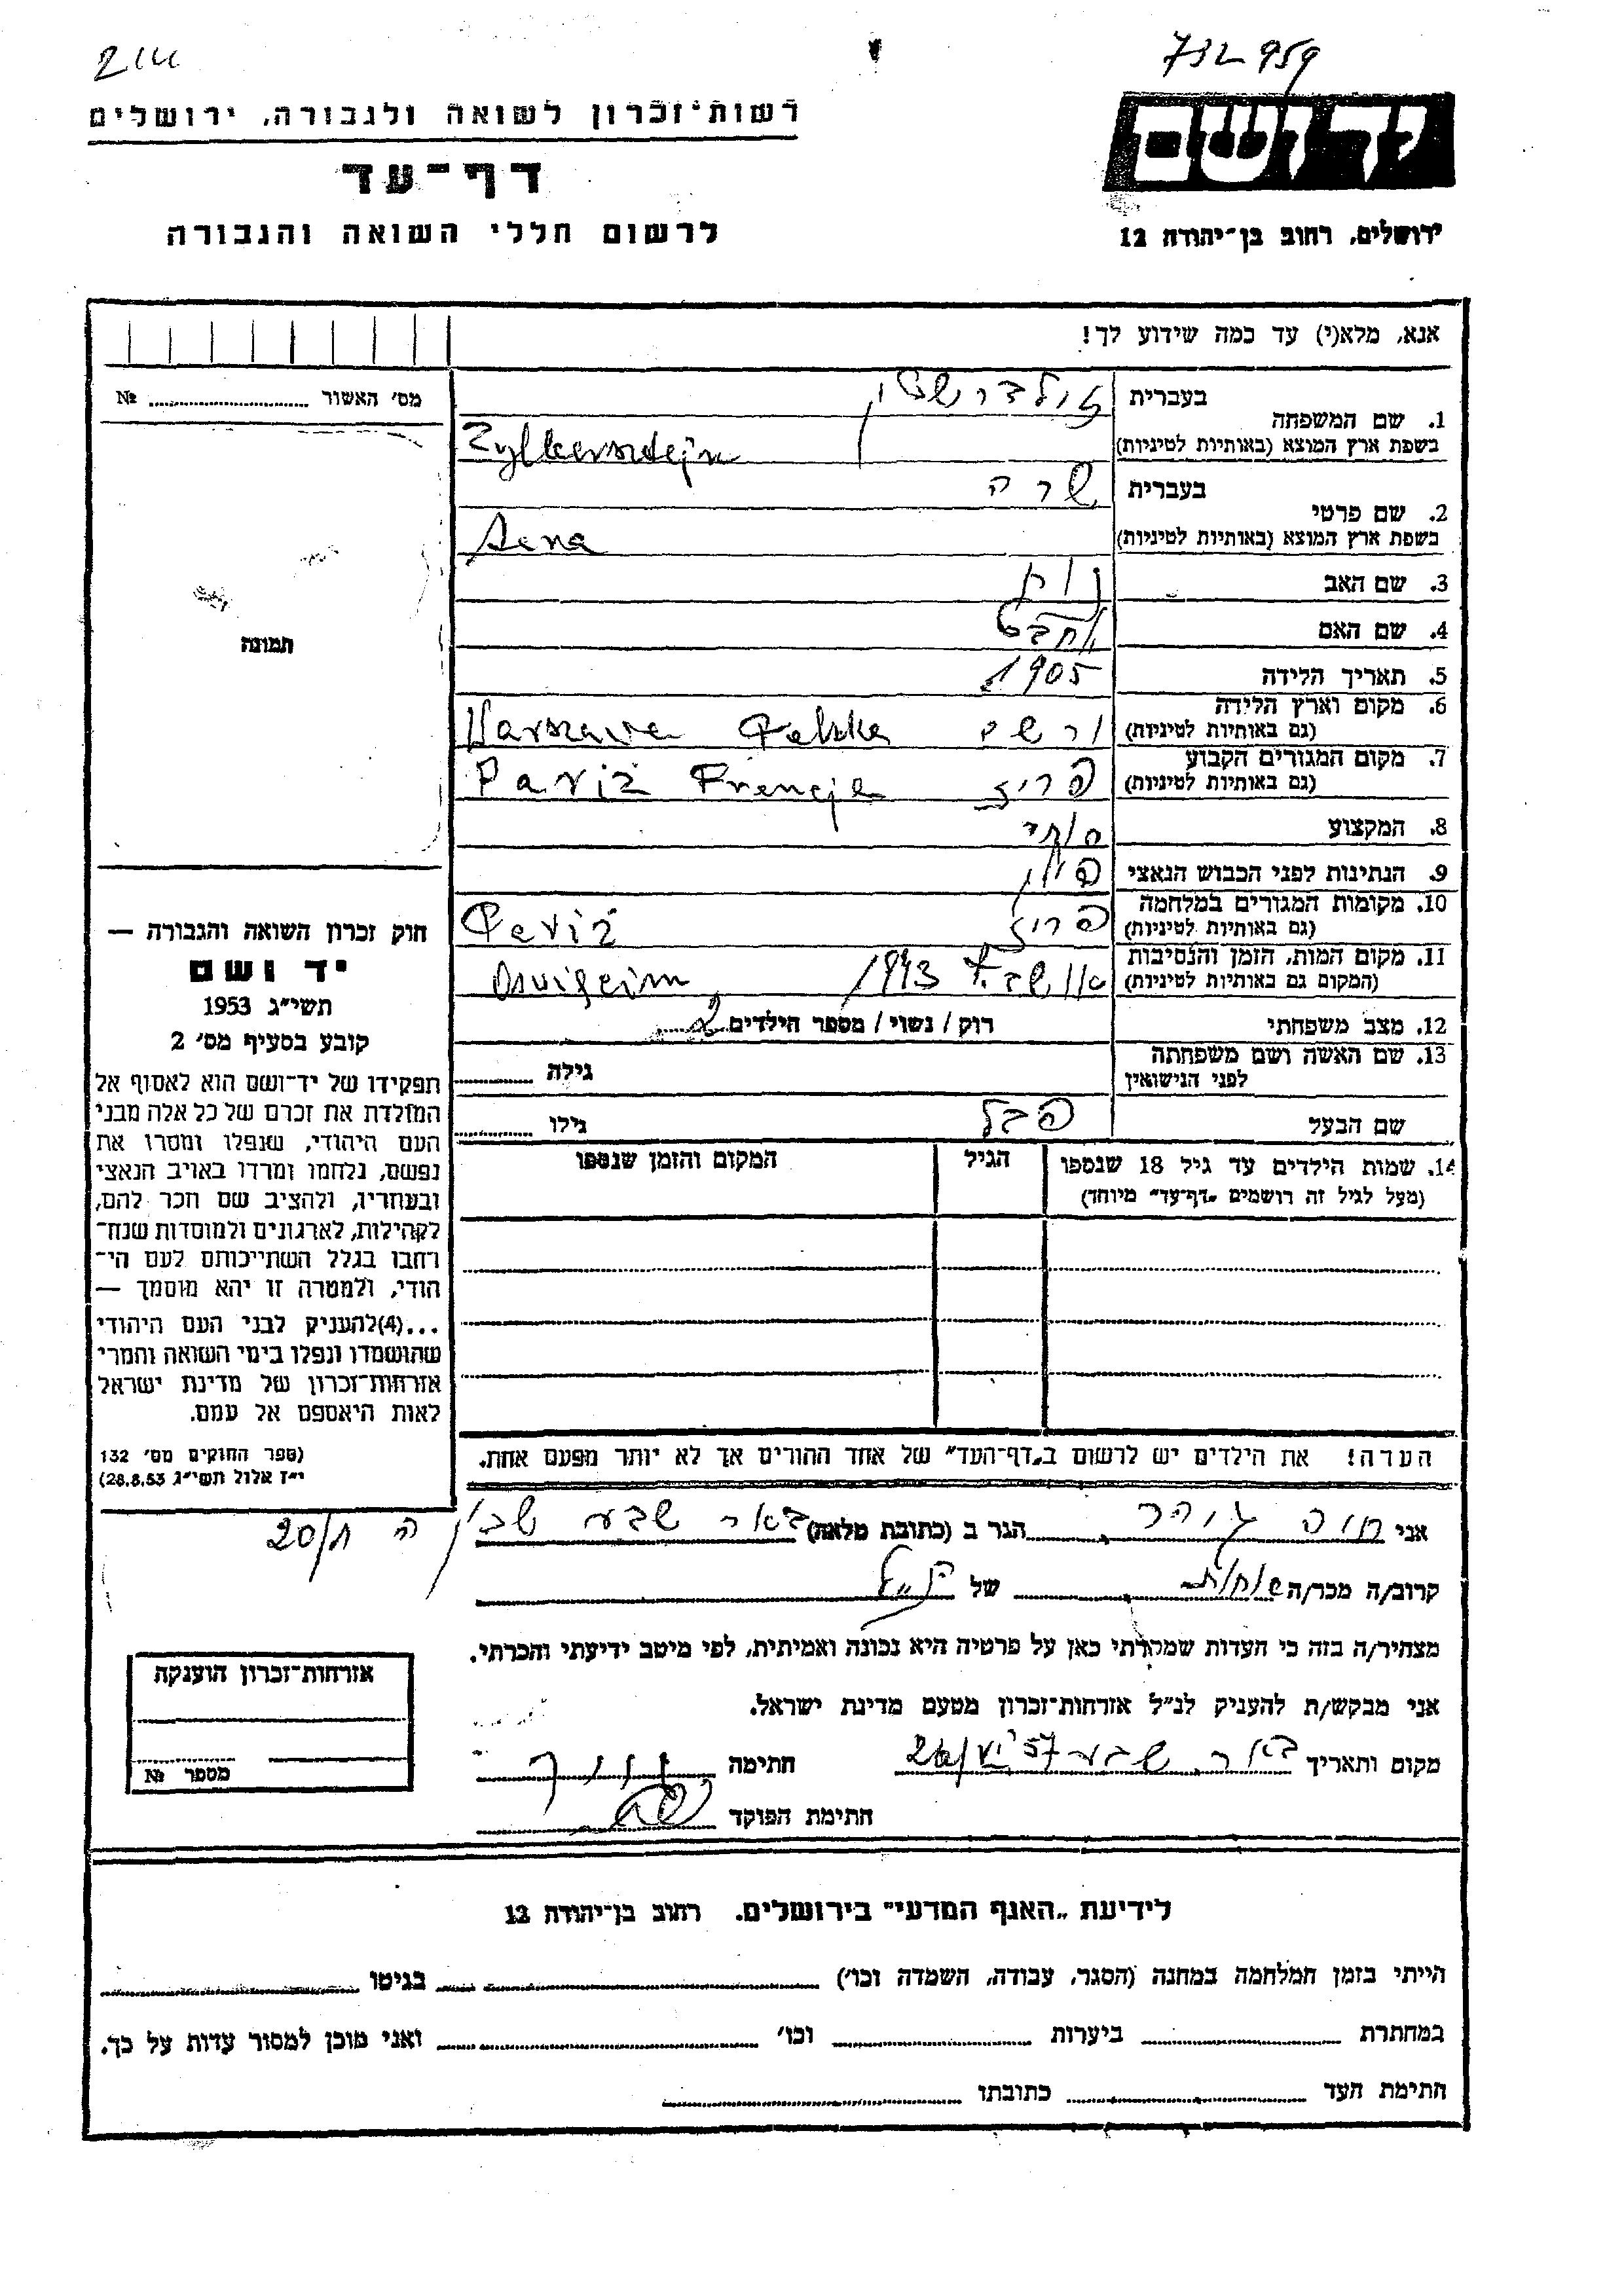 732959
רשות־זכרון לשואה ולגבורה, ירושלים
דף־עד
לרשום חללי השואה והגבורה
ירושלים, רחוב בן־יהודה 12
אנא, מלא(י) עד כמה שידוע לך!
מס׳ האשור № ..........
1. שם המשפחה
בעברית
בשפת ארץ המוצא (באותיות לטיניות) Zylbersztejn
2. שם פרטי
בעברית שרה
בשפת ארץ המוצא (באותיות לטיניות)
3. שם האב
4. שם האם
5. תאריך הלידה 1905
6. מקום וארץ הלידה (גם באותיות לטיניות) ורשה Warszawa Polska
7. מקום המגורים הקבוע (גם באותיות לטיניות) פריז Pariż Francja
8. המקצוע
9. הנתינות לפני הכבוש הנאצי פולין
10. מקומות המגורים במלחמה (גם באותיות לטיניות) פריז Pariż
11. מקום המות, הזמן והנסיבות (המקום גם באותיות לטיניות) 1943
12. מצב משפחתי רוק / נשוי / מספר הילדים 2
13. שם האשה ושם משפחתה לפני הנישואין גילה ..........
שם הבעל גילו ..........
14. שמות הילדים עד גיל 18 שנספו הגיל המקום והזמן שנספו
(מעל לגיל זה רושמים „דף־עד״ מיוחד)
הערה! את הילדים יש לרשום ב„דף־העד״ של אחד ההורים אך לא יותר מפעם אחת.
תמונה
חוק זכרון השואה והגבורה —
יד ושם
תשי״ג 1953
קובע בסעיף מס׳ 2
תפקידו של יד־ושם הוא לאסוף אל
המולדת את זכרם של כל אלה מבני
העם היהודי, שנפלו ומסרו את
נפשם, נלחמו ומרדו באויב הנאצי
ובעוזריו, ולהציב שם וזכר להם,
לקהילות, לארגונים ולמוסדות שנח־
רבו בגלל השתייכותם לעם הי־
הודי, ולמטרה זו יהא מוסמך —
...(4)להעניק לבני העם היהודי
שהושמדו ונפלו בימי השואה והמרי
אזרחות־זכרון של מדינת ישראל
לאות היאספם אל עמם.
(ספר החוקים מס׳ 132
י״ז אלול תשי״ג 28.8.53)
אני חנה הגר ב (כתובת מלאה) באר שבע שכון ה 20/
קרוב/ה מכר/ה של הנ״ל
מצהיר/ה בזה כי העדות שמסרתי כאן על פרטיה היא נכונה ואמיתית, לפי מיטב ידיעתי והכרתי.
אני מבקש/ת להעניק לנ״ל אזרחות־זכרון מטעם מדינת ישראל.
מקום ותאריך באר שבע חתימה
חתימת הפוקד
אזרחות־זכרון הוענקה
מספר №
לידיעת „האגף המדעי״ בירושלים. רחוב בן־יהודה 12
הייתי בזמן המלחמה במחנה (הסגר, עבודה, השמדה וכו׳) .......... בגיטו ..........
במחתרת .......... ביערות .......... וכו׳ .......... ואני מוכן למסור עדות על כך.
חתימת העד .......... כתובתו ..........